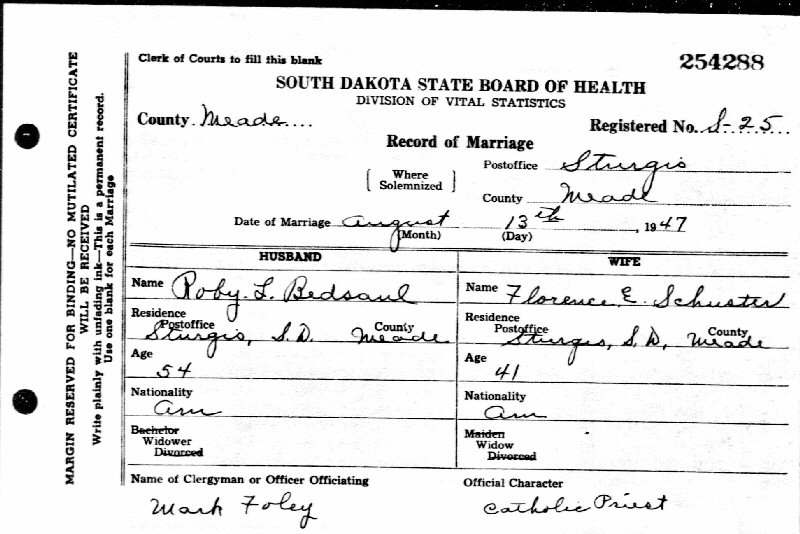 Clerk of Courts to fill this blank
254288
SOUTH DAKOTA STATE BOARD OF HEALTH
DIVISION OF VITAL STATISTICS
County Meade
Registered No. S-25
Record of Marriage
(Where Solemnized)
Postoffice Sturgis
County Meade
Date of Marriage August 13th, 1947
(Month) (Day)
HUSBAND
Name Roby L. Bedsaul
Residence
Postoffice County
Sturgis, S.D. Meade
Age
54
Nationality
Am
Bachelor
Widower
Divorced
WIFE
Name Florence E. Schuster
Residence
Postoffice County
Sturgis, S.D., Meade
Age
41
Nationality
Am
Maiden
Widow
Divorced
Name of Clergyman or Officer Officiating
Mark Foley
Official Character
Catholic Priest
MARGIN RESERVED FOR BINDING—NO MUTILATED CERTIFICATE
WILL BE RECEIVED
Write plainly with unfading ink—This is a permanent record.
Use one blank for each Marriage